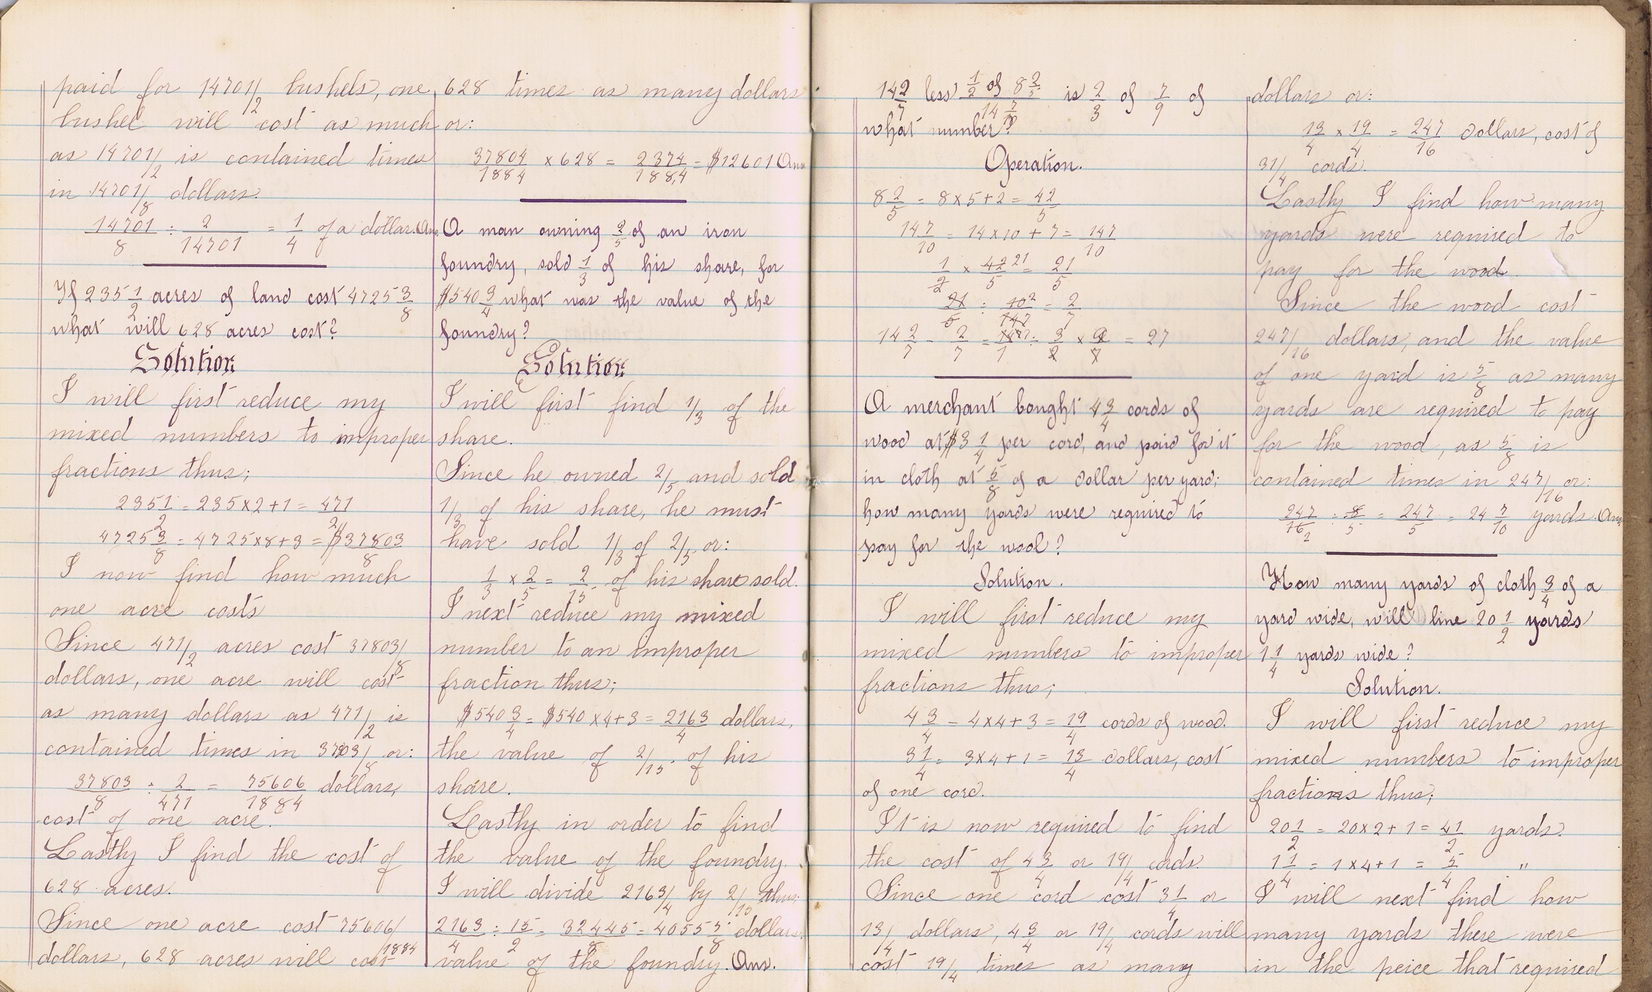 paid for 14701/2 bushels, one
bushel will cost as much
as 14701/2 is contained times
in 14701/8 dollars.
14701/8 ÷ 2/14701 = 1/4 of a dollar. Ans
If 235 1/2 acres of land cost 4725 3/8
what will 628 acres cost?
Solution
I will first reduce my
mixed numbers to improper
fractions thus;
235 1/2 = 235x2+1 = 471/2
4725 3/8 = 4725x8+3 = $37803/8
I now find how much
one acre costs
Since 471/2 acres cost 37803/8
dollars, one acre will cost
as many dollars as 471/2 is
contained times in 37803/8 or:
37803/8 ÷ 2/471 = 75606/1884 dollars,
cost of one acre.
Lastly I find the cost of
628 acres.
Since one acre cost 75606/1884
dollars, 628 acres will cost
628 times as many dollars
or:
37804/1884 x 628 = 2374/1884 = $12601 Ans
A man owning 2/5 of an iron
foundry, sold 1/3 of his share, for
$540 3/4 what was the value of the
foundry?
Solution
I will first find 1/3 of the
share.
Since he owned 2/5 and sold
1/3 of his share, he must
have sold 1/3 of 2/5 or:
1/3 x 2/5 = 2/15 of his share sold.
I next reduce my mixed
number to an improper
fraction thus;
$540 3/4 = $540x4+3 = 2163/4 dollars,
the value of 2/15 of his
share.
Lastly in order to find
the value of the foundry.
I will divide 2163/4 by 2/15 thus:
2163/4 ÷ 15/2 = 32445/8 = 4055 5/8 dollars,
value of the foundry. Ans.
14 2/7 less 1/2 of 8 2/5 / 14 7/10 is 2/3 of 7/9 of
what number?
Operation.
8 2/5 = 8x5+2 = 42/5
14 7/10 = 14x10+7 = 147/10
1/2 x 42/5 21 = 21/5
21/5 ÷ 10 2/147 = 2/7
14 2/7 - 2/7 = 27
A merchant bought 4 3/4 cords of
wood at $3 1/4 per cord, and paid for it
in cloth at 5/8 of a dollar per yard;
how many yards were required to
pay for the wool?
Solution.
I will first reduce my
mixed numbers to improper
fractions thus;
4 3/4 = 4x4+3 = 19/4 cords of wood.
3 1/4 = 3x4+1 = 13/4 dollars, cost
of one cord.
It is now required to find
the cost of 4 3/4 or 19/4 cords.
Since one cord cost 3 1/4 or
13/4 dollars, 4 3/4 or 19/4 cords will
cost 19/4 times as many
dollars or:
13/4 x 19/4 = 247/16 dollars, cost of
31/4 cords.
Lastly I find how many
yards were required to
pay for the wood.
Since the wood cost
247/16 dollars, and the value
of one yard is 5/8 as many
yards are required to pay
for the wood, as 5/8 is
contained times in 247/16 or:
247/16 2 ÷ 8/5 = 247/5 = 24 7/10 yards. Ans
How many yards of cloth 3/4 of a
yard wide, will line 20 1/2 yards
1 1/4 yards wide?
Solution.
I will first reduce my
mixed numbers to improper
fractions thus;
20 1/2 = 20x2+1 = 41/2 yards.
1 1/4 = 1x4+1 = 5/4 "
I will next find how
many yards there were
in the peice that required